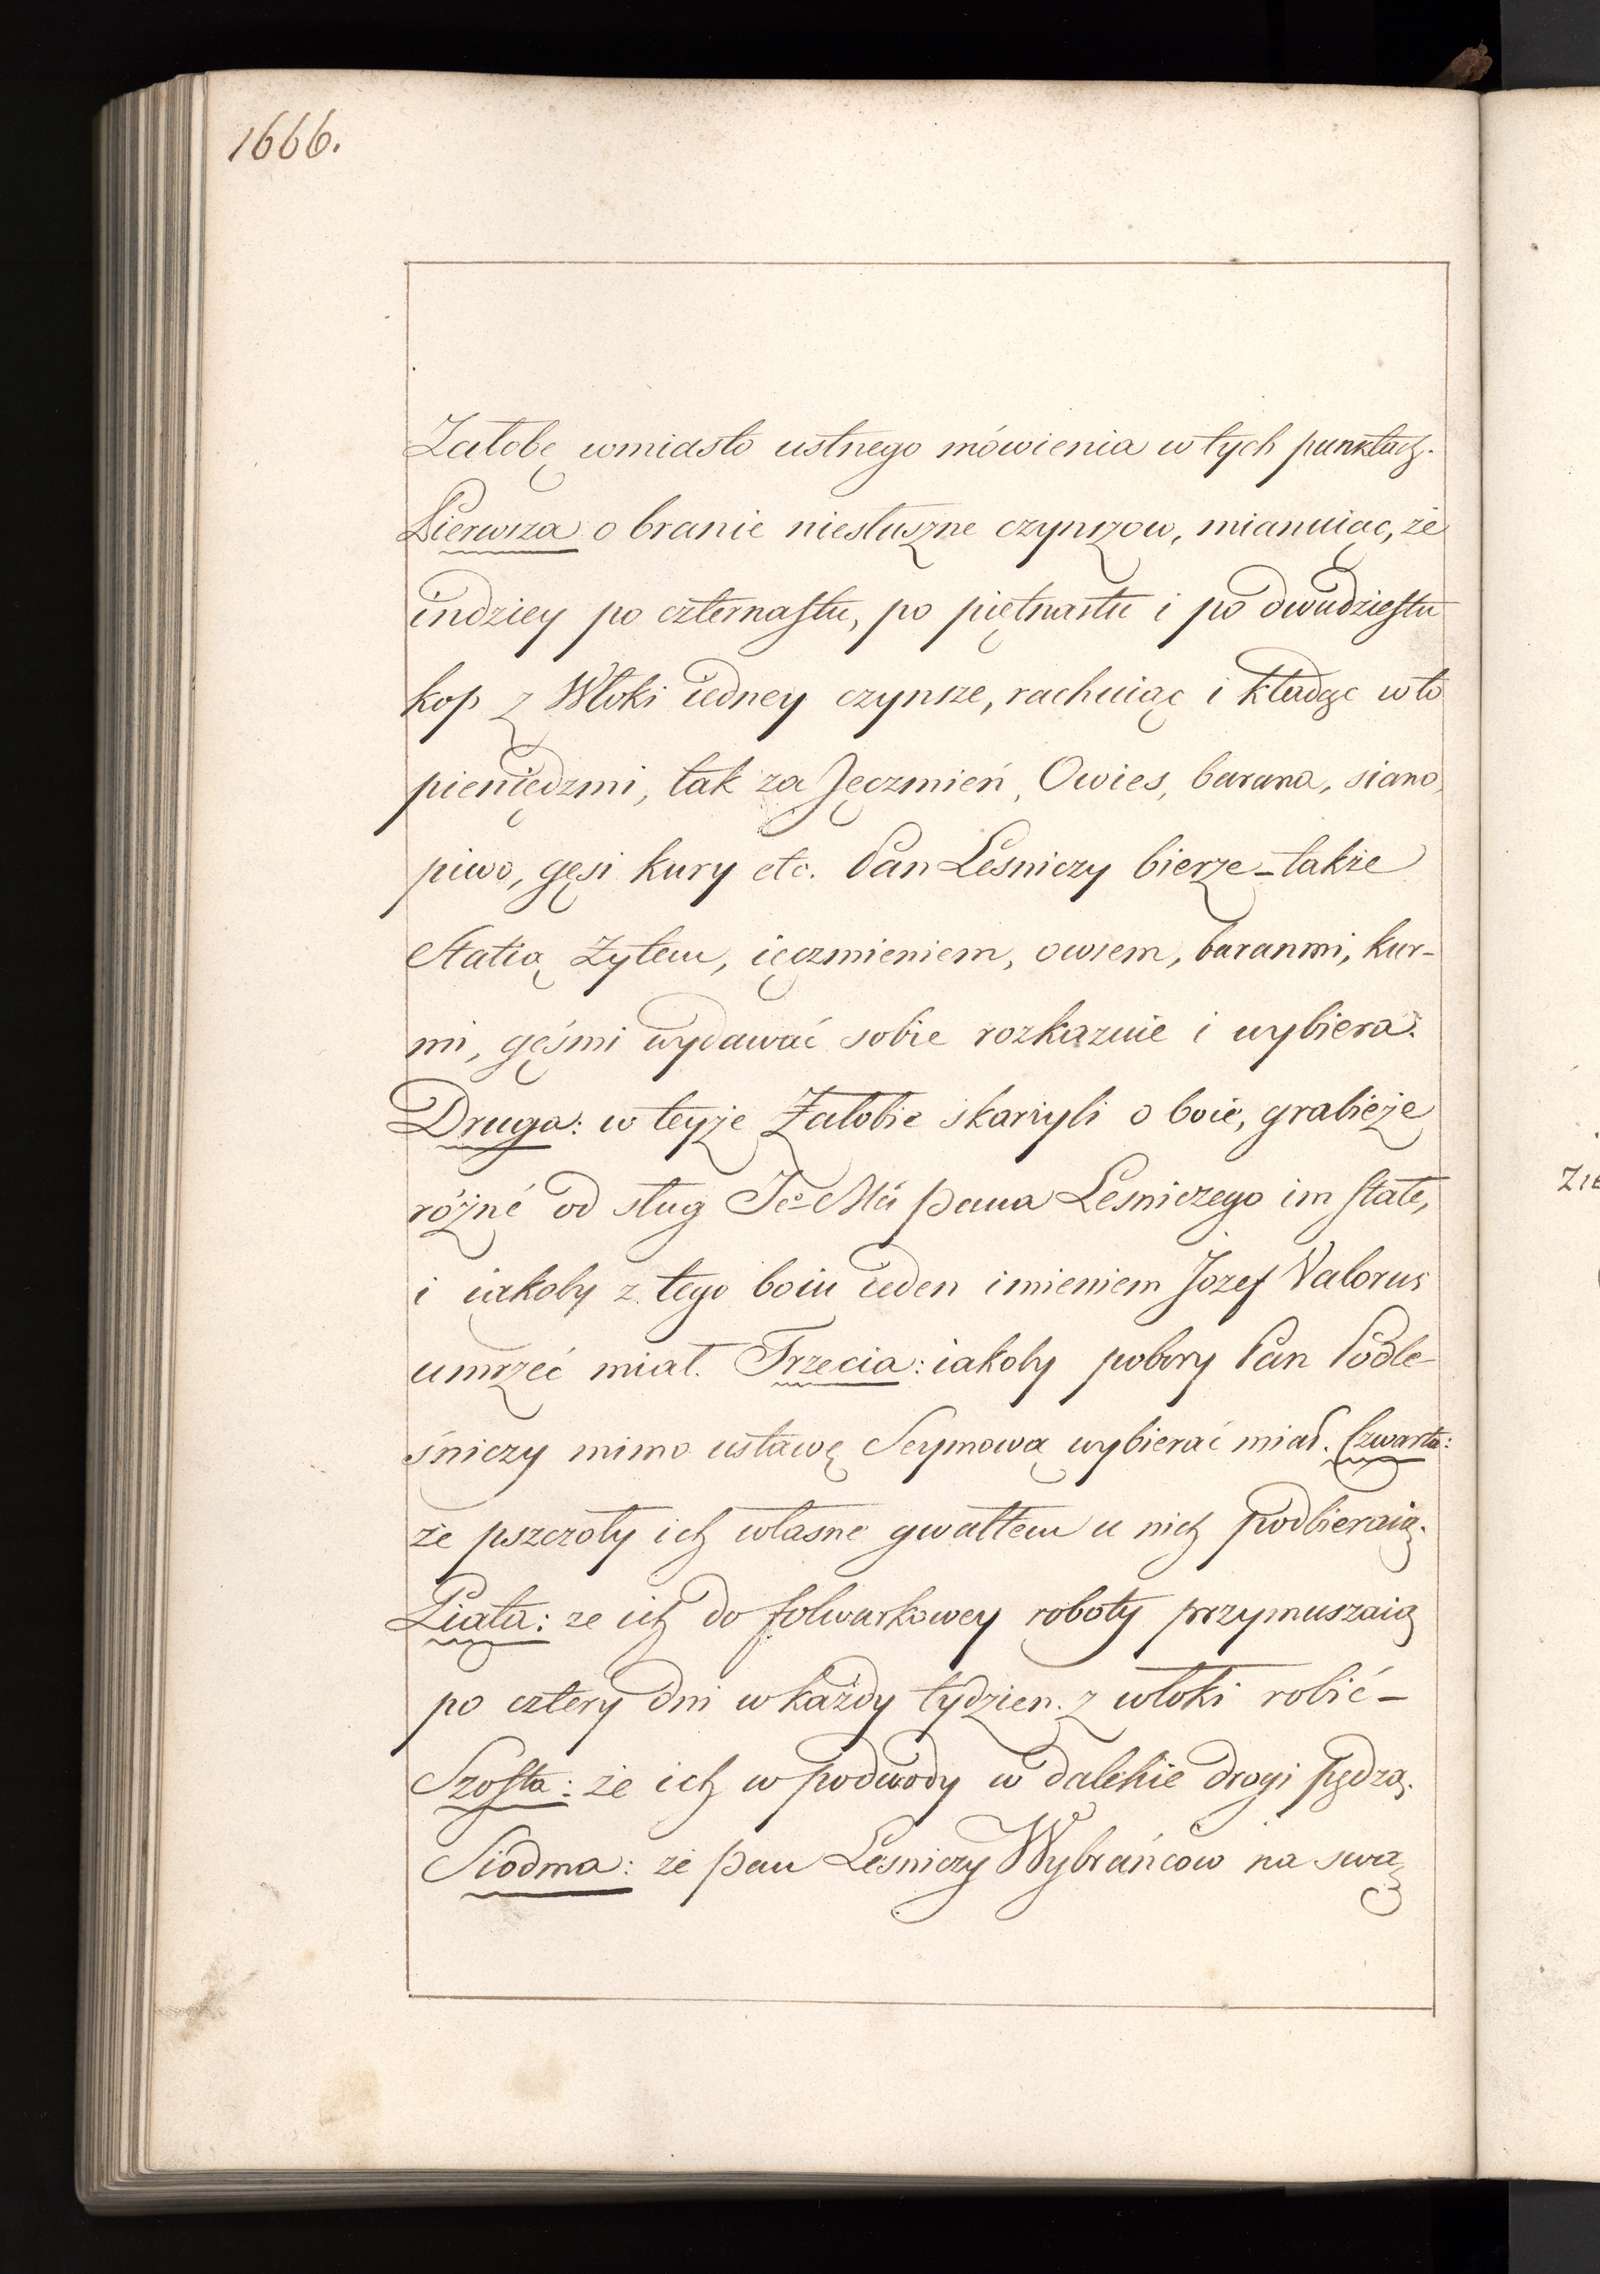 1666.
Załobę wmiasto ustnego mówienia w tych punktach.
Pierwsza o branie niesłuszne czynszow, mianuiąc, że
indziey po czternastu, po piętnastu i po dwudziestu
kop z Włoki iedney czynsze, rachuiąc i kładąc w to
pieniędzmi, tak za Jęczmień, Owies, barana, siano,
piwo, gęsi kury etc. Pan Leśniczy bierze – także
Statią Żytem, ięczmieniem, owsem, baranmi, kur-
mi, gęśmi wydawać sobie rozkazuie i wybiera.
Druga: w teyże Żałobie skarżyli o boie, grabieże
różné od sług Jeo Mci pana Leśniczego im stałe,
i iakoby z tego boiu ieden imieniem Jozef Valorus
umrzeć miał. Trzecia: iakoby pobory Pan Podle-
śniczy mimo ustawę Seymową wybierać miał. Czwarta:
że pszczoły ich własne gwałtem u nich podbieraią.
Piąta: ze ich do folwarkowey roboty przymuszaią
po cztery dni w każdy tydzien z włoki robić –
Szosta: że ich w podwody w dalekie drogi pędzą.
Siodma: że pan Leśniczy Wybrańcow na swą
Zie